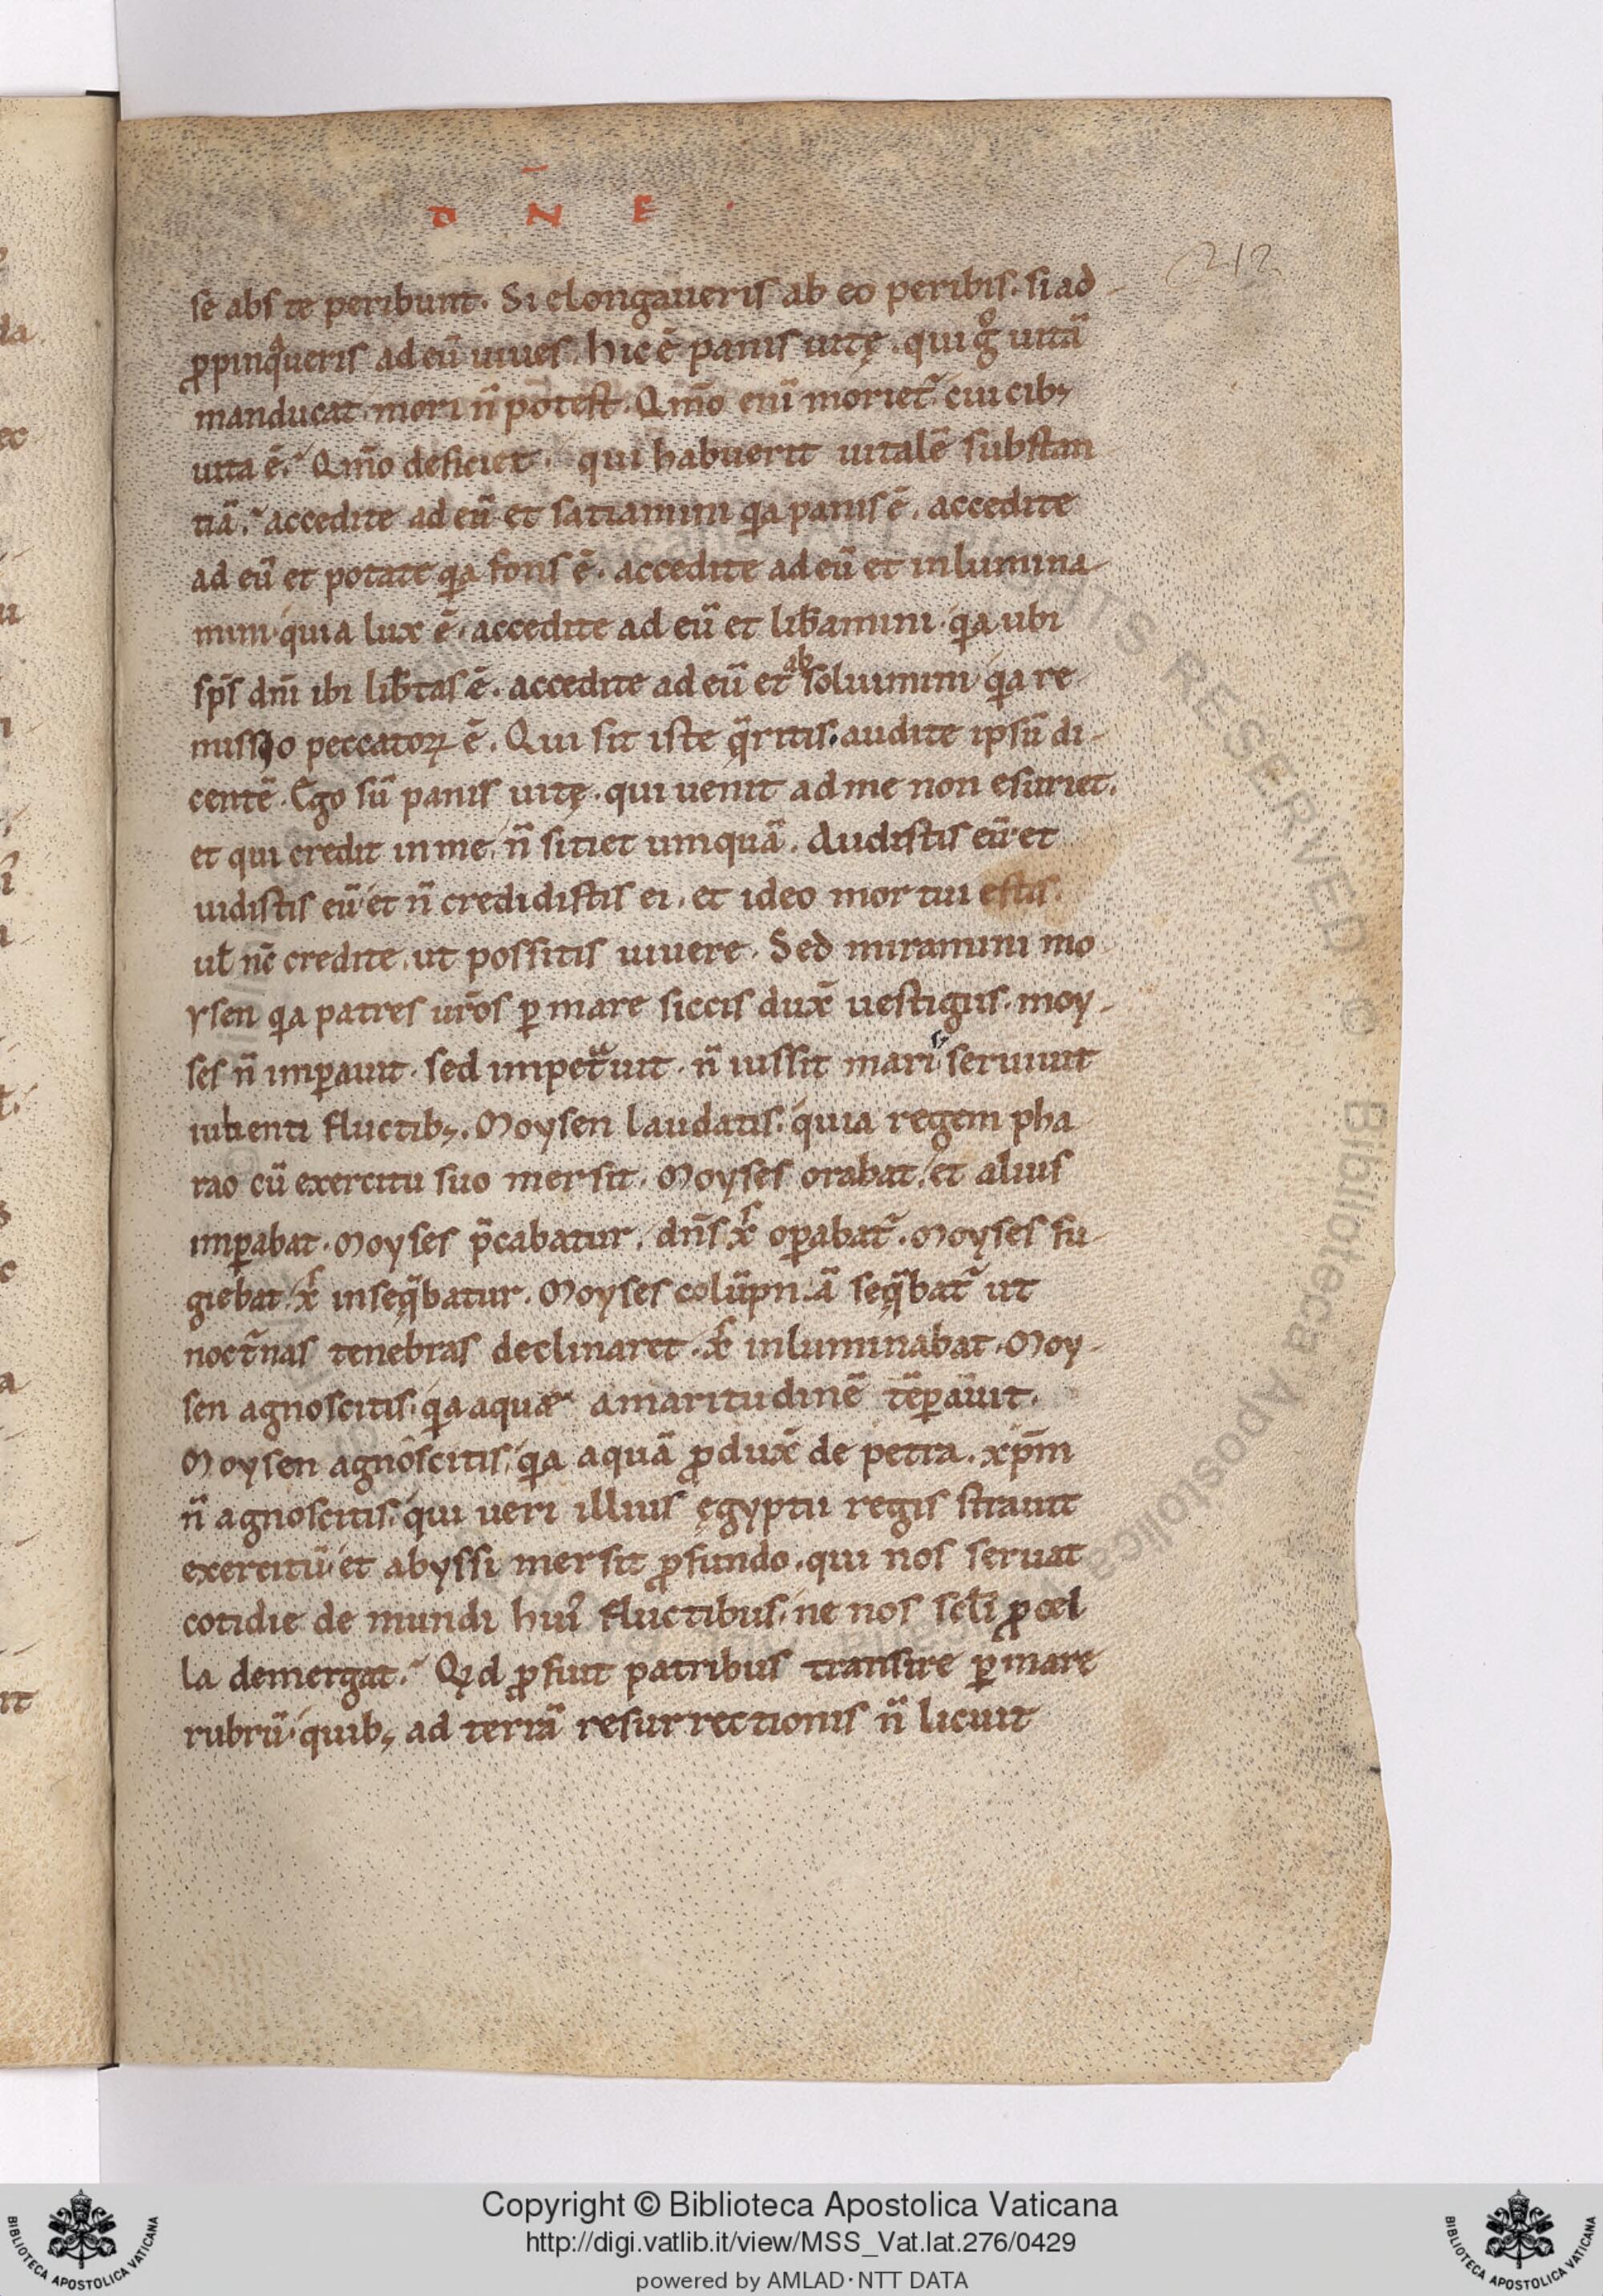 D N̄ E .
212
sē abs te peribunt. Si elongaueris ab eo peribis. si ad
ꝓpinqͣueris ad eū uiues. hic ē panis uitę. qui gͦ uitā
manducat. mori n̄ potest. Qm̄o eni͂ morietᷣ cui cibꝫ
uita ē. Qm̄o deficiet. qui habuerit uitalē substan
tiā. accedite ad eū et satiamini qͥa panis ē. accedite
ad eū et potate qͥa fons ē. accedite ad eū et inlumina
mini quia lux ē. accedite ad eū et lib̄amini. qͥa ubi
sp̄s dn̄i ibi lib̄tas ē. accedite ad eū et absoluimini qͥa re
missio peccatoꝝ ē. Qui sit iste q̄ritis. audite ipsū di
centē. Ego sū panis uitę. qui uenit ad me non esuriet.
et qui credit in me, n̄ sitiet umquā. Audistis eū et
uidistis eū et n̄ credidistis ei. et ideo mortui estis.
uł nc̄ credite ut possitis uiuere. Sed miramini mo
ysen qͥa patres ur̄os ꝑ mare siccis dux̄ uestigiis. moy
ses n̄ imꝑauit. sed impetᷓuit. n̄ iussit mari s; seruiuit
iubenti fluctibꝫ. Moysen laudatis. quia regem pha
rao cū exercitu suo mersit. Moyses orabat, et alius
imꝑabat. Moyses p̄cabatur, dn̄s xͬ oꝑabatᷣ. Moyses fu
giebat. xͬ inseq̄batur. Moyses colūpnā seq̄batᷣ ut
noct̄nas tenebras declinaret. xͬ inluminabat. Moy
sen agnoscitis. qͥa aquæ amaritudinē tēꝑauit.
Moysen agnoscitis, qͥa aquā ꝓdux̄ de petra. xp̄m
n̄ agnoscitis, qui ueri illius ęgyptii regis strauit
exercitū et abyssi mersit ꝓfundo. qui nos seruat
cotidie de mundi hui᾽ fluctibus, ne nos scłi ꝓcel
la demergat. Qͥd ꝓfuit patribus transire ꝑ mare
rubrū quibꝫ ad terrā resurrectionis n̄ licuit
© Biblioteca Apostolica Vaticana ALL RIGHTS RESERVED
Copyright © Biblioteca Apostolica Vaticana
http://digi.vatlib.it/view/MSS_Vat.lat.276/0429
powered by AMLAD·NTT DATA
BIBLIOTECA APOSTOLICA VATICANA
BIBLIOTECA APOSTOLICA VATICANA